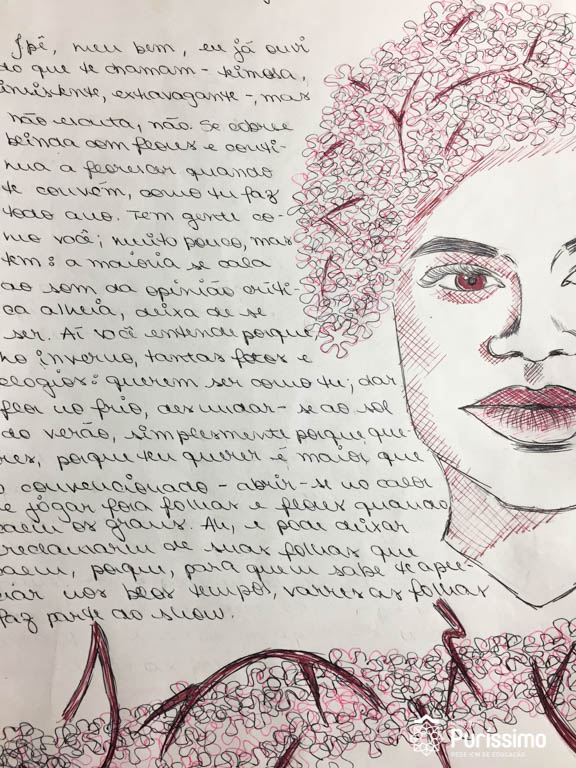 Ipê, meu bem, eu já ouvi
do que te chamam - teimosa,
insistente, extravagante -, mas
não escuta, não. Se cobre
linda com flores e conti-
nua a florescer quando
te convém, como tu faz
todo ano. Tem gente co-
mo você; muito pouco, mas
tem: a maioria se cala
ao som da opinião críti-
ca alheia, deixa de se
ser. Aí você entende porque
no inverno, tantas fotos e
elogios: querem ser como tu; dar
flor no frio, desnudar-se ao sol
do verão, simplesmente porque que-
res, porque teu querer é maior que
o convencionado - abrir-se no calor
e jogar fora folhas e flores quando
caem os graus. Ah, e pode deixar
reclamarem de suas folhas que
caem, porque, para quem sabe te apre-
ciar nos belos tempos, varrer as folhas
faz parte do show.
Puríssimo
REDE ICM DE EDUCAÇÃO